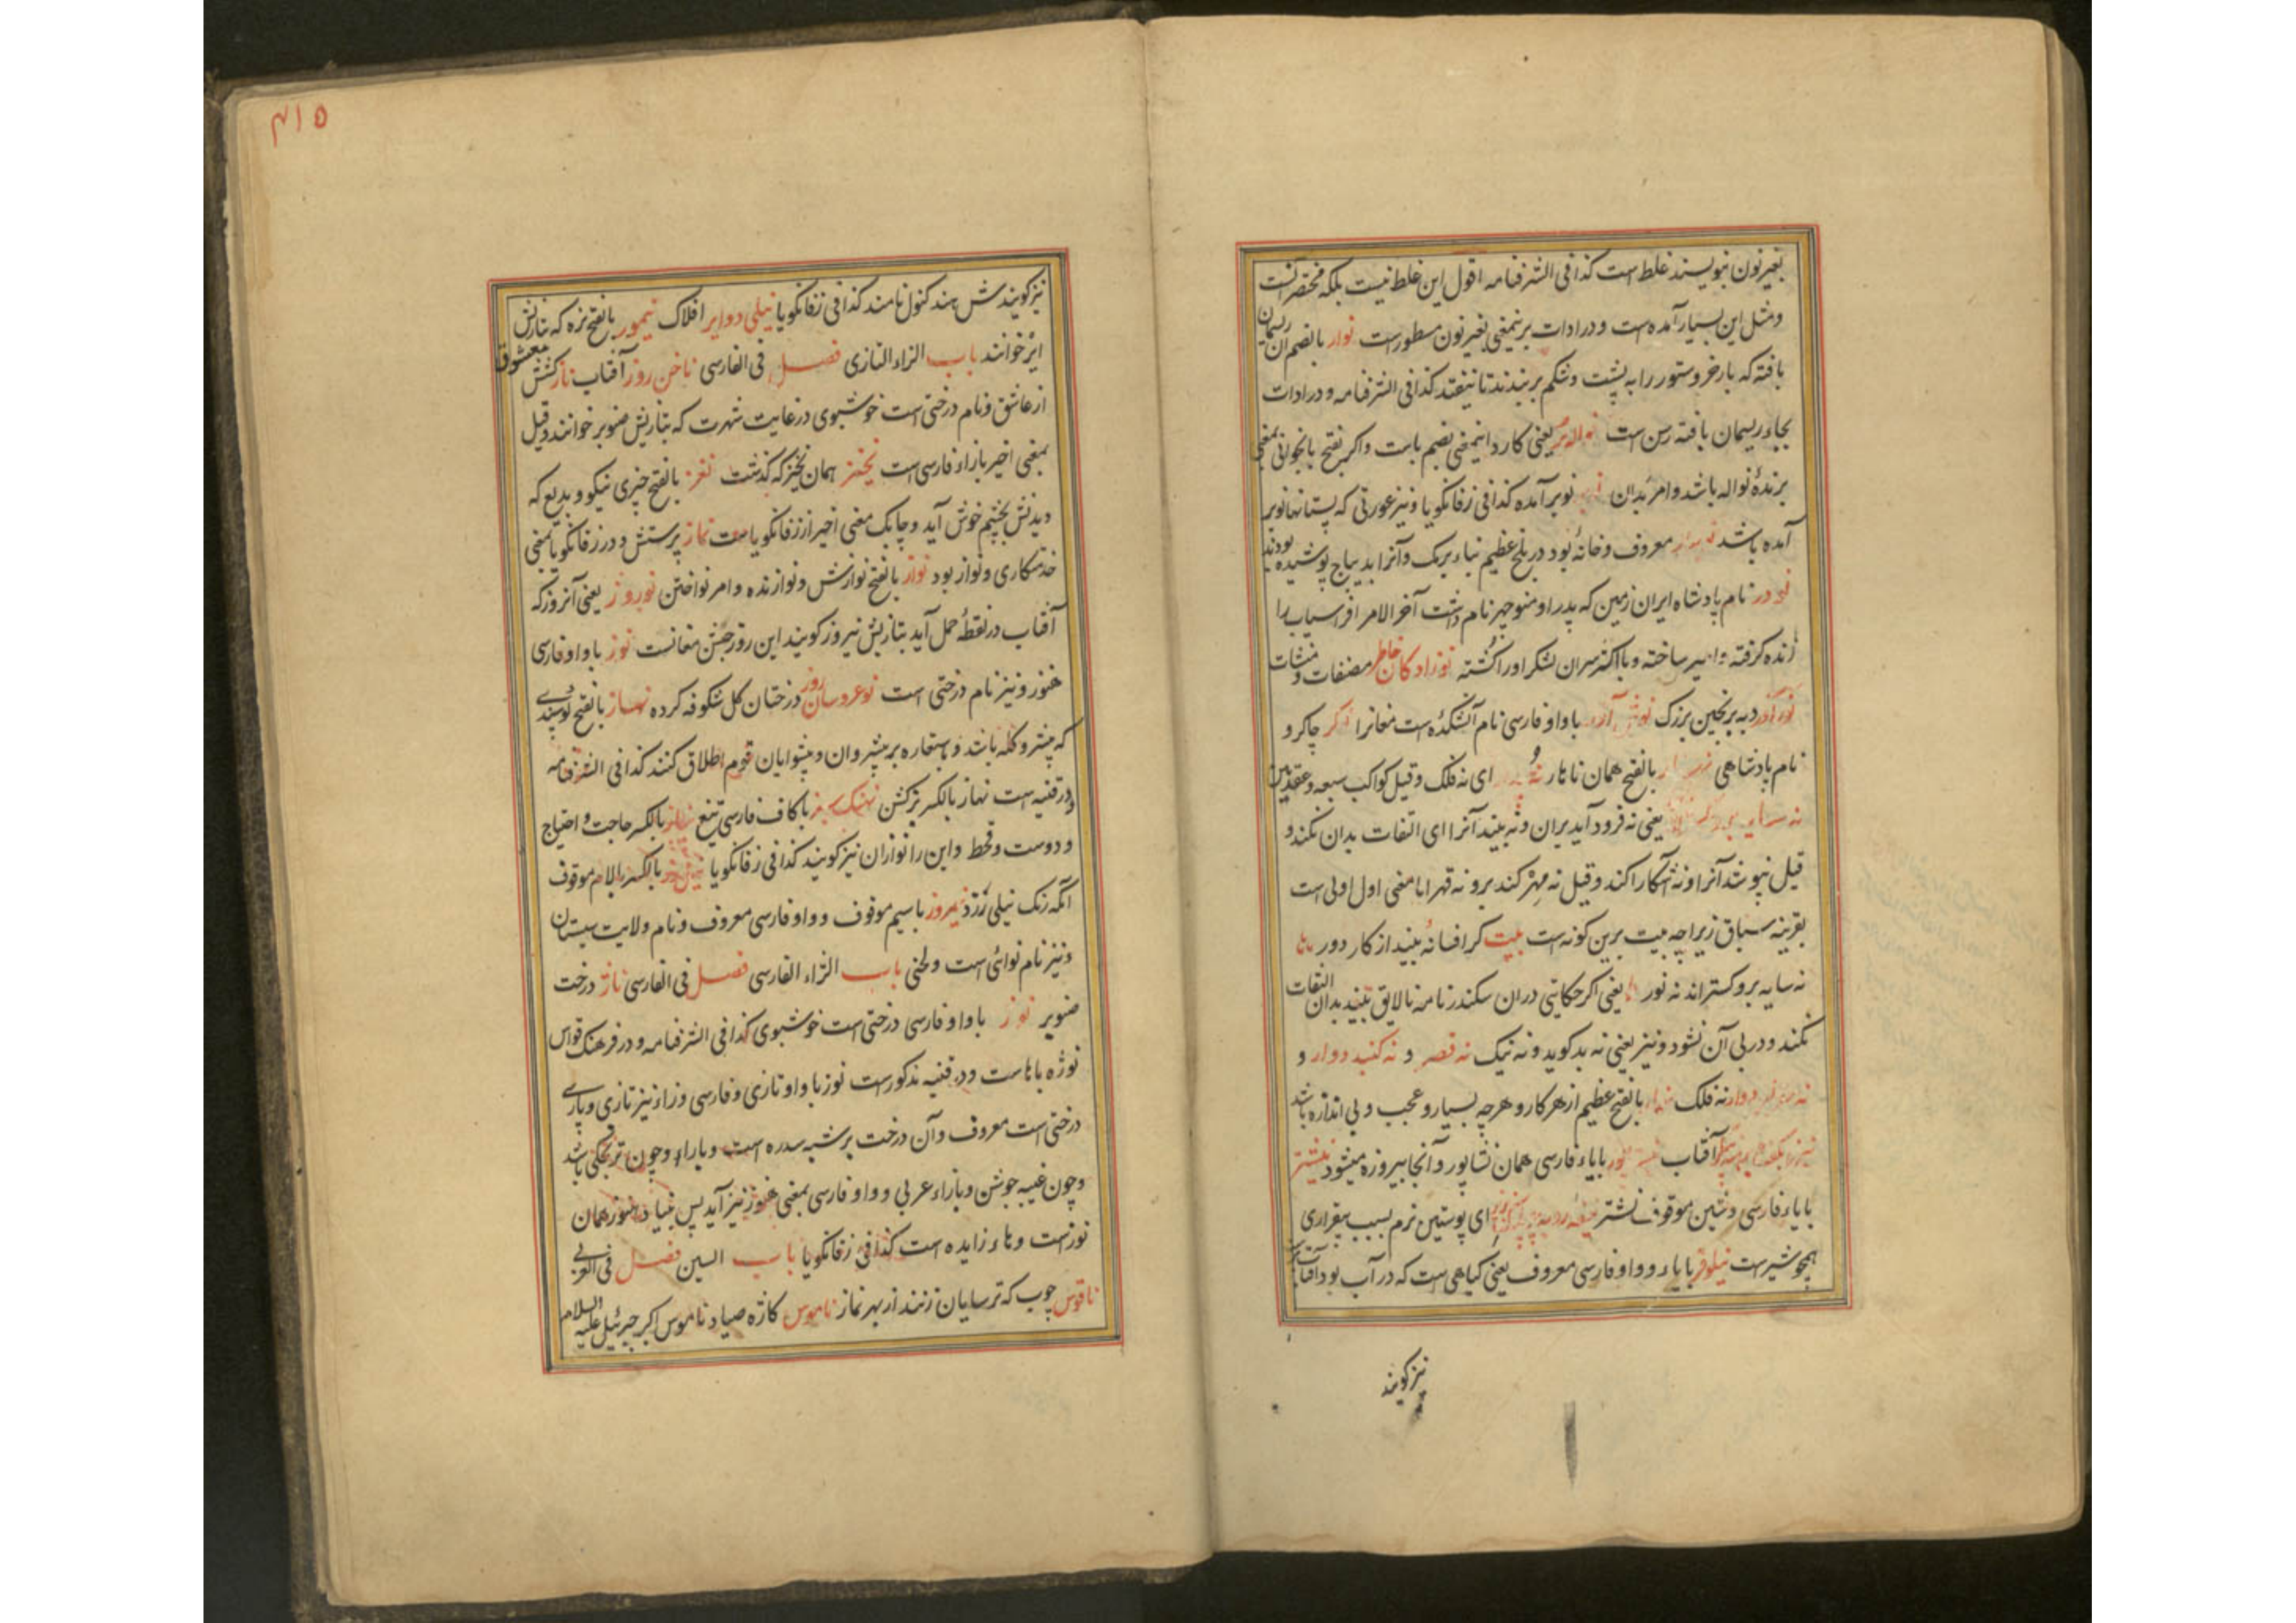 بغیر نون نبویسند غلط است کذا فی الشرفنامه اقول این غلط نیست بلکه مختصر آنست
و مثل این بسیار آمده است و در ادات بر نیمعنی بغیر نون مسطور است نوار بالضم آن ریسمان
بافته که بار خر و ستور را به پشت و شکم بر بندند تا نیفتد کذا فی الشرفنامه و در ادات
بجاء ریسمان بافته رسن است نواله بر یعنی کارد اینمعنی بضم باست و اگر بفتح با نخوانی بمعنی
برندهٔ نواله باشد و امر بدان نوبر آمده کذا فی زفانکویا و نیز عورتی که پستانها نوبر
آمده باشد نوبهار معروف و خانهٔ بود در بلخ عظیم بناء برمک و آنرا بدیباج پوشیده بودند
نودر نام پادشاه ایران زمین که پدر او منوچهر نام داشت آخر الامر افراسیاب را
زنده گرفته و اسیر ساخته و با اکثر سران لشکر او را کشته نوزادکان خاطر مصنفات و منشآت
نورآور دیه برنجین بزرک نوش آذر با واو فارسی نام آتشکدهٔ است مغانرا نوکر چاکر و
نام پادشاهی بالفتح همان ناهار ای نه فلک و قیل کواکب سبعه و عقدتین
یعنی نه فرود آید بران و نه بیند آنرا ای التفات بدان نکند و
قیل نپوشد آنرا و نه آشکارا کند و قیل نه مهر کند برو نه قهر اما معنی اول اولی است
بقرینه سباق زیرا چه بیت برین کونه است بیت گر افسانهٔ بیند از کار دور
نه سایه برو گستراند نه نور یعنی اگر حکایتی دران سکندرنامه نالایق بیند بدان التفات
نکند و در پی آن نشود و نیز یعنی نه بد گوید و نه نیک نه قصر و نه کنبد دوار و
نه فلک بالفتح عظیم از هر کار و هر چه بسیار و عجب و بی اندازه باشد
آفتاب نیشاپور با یاء فارسی همان نشاپور و آنجا پیروزه میشود نیشتر
با یاء فارسی و شین موقوف نشتر ای پوستین نرم بسبب بیقراری
همچو شیر است نیلوفر با یاء و واو فارسی معروف یعنی گیاهی است که در آب بود
نیز گویند
۴۱۵
نیز گویندش هند کنول نامند کذا فی زفانکویا نیلی دوایر افلاک نیمور بالفتح نره که بتازیش
ایر خوانند باب الزاء التازی فصل فی الفارسی ناخن روز آفتاب ناز کشش معشوق
از عاشق و نام درختی است خوشبوی در غایت شهرت که بتازیش صنوبر خوانند و قیل
بمعنی اخیر با زاء فارسی است نخیز همان نخیز که گذشت نغز بالفتح چیزی نیکو و بدیع که
دیدنش بچشم خوش آید و چابک معنی اخیر از زفانکویا است نماز پرستش و در زفانکویا بمعنی
خدمتکاری و نواز بود نواز بالفتح نوازش و نوازنده و امر نواختن نوروز یعنی آنروز که
آفتاب در نقطهٔ حمل آید بتازیش نیروز گویند این روز جشن مغانست نوز با واو فارسی
هنوز و نیز نام درختی است نوعروسان روز درختان گل شکوفه کرده نهاز بالفتح گوسپندی
که پیشرو گله باشد و باستعاره بر پیشروان و پیشوایان قوم اطلاق کنند کذا فی الشرفنامه
و در قنیه است نهاز بالکسر بزکشن نهنک سبز با کاف فارسی تیغ نیاز بالکسر حاجت و احتیاج
و دوست و قحط و این را نوازان نیز گویند کذا فی زفانکویا بالکسر با لام موقوف
آنکه رنک نیلی رزد نیمروز با میم موقوف و واو فارسی معروف و نام ولایت سیستان
و نیز نام نوائی است و لحنی باب الژاء الفارسی فصل فی الفارسی ناژ درخت
صنوبر نوژ با واو فارسی درختی است خوشبوی کذا فی الشرفنامه و در فرهنک قواس
نوژه با هاست و در قنیه مذکور است نوز با واو تازی و فارسی و زاء نیز تازی و پارسی
درختی است معروف و آن درخت بر شبه سدره است و باراو چون ترنجکی باشد
و چون غیبه جوشن و با راء عربی و واو فارسی بمعنی هنوز نیز آید پس بنیاد هنوز همان
نوز است و هاء زایده است کذا فی زفانکویا باب السین فصل فی العربی
ناقوس چوب که ترسایان زنند از بهر نماز ناموس کازهٔ صیاد ناموس اکبر جبرئیل علیه السلام